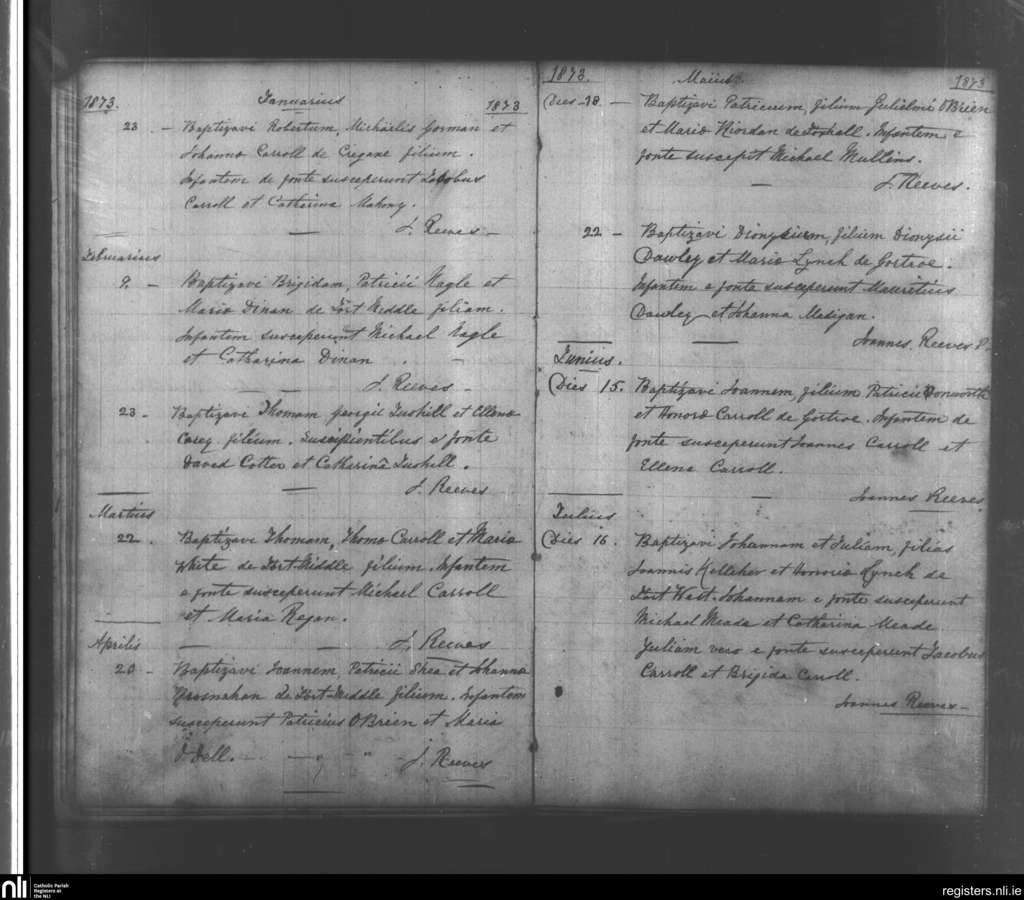 1873. Januarius 1873
23 - Baptizavi Robertum, Michaelis Gorman et
Johanna Carroll de Cregane filium.
Infantem de fonte susceperunt Jacobus
Carroll et Catherina Mahony.
J. Reeves -
Februarius
9. - Baptizavi Brigidam, Patricii Nagle et
Maria Dinan de Fort Middle filiam.
Infantem susceperunt Michael Nagle
et Catharina Dinan
J. Reeves -
23 - Baptizavi Thomam Georgii Tuohill et Ellena
Carey filium. Suscipientibus e fonte
David Cotter et Catharina Tuohill.
J. Reeves
Martius
22. Baptizavi Thomam, Thoma Carroll et Maria
White de Fort-Middle filium. Infantem
e fonte susceperunt Michael Carroll
et Maria Regan.
J. Reeves
Aprilis
20 - Baptizavi Joannem, Patricii Shea et Johanna
Brosnahan de Fort-Middle filium. Infantem
susceperunt Patricius O'Brien et Maria
O'Dell. J. Reeves
1873. Maius. 1873
Dies 18 - Baptizavi Patricium, filium Gulielmi O'Brien
et Maria Riordan de Foxhall. Infantem e
fonte suscepit Michael Mullins.
J. Reeves.
22 - Baptizavi Dionysium, filium Dionysii
Dawley et Maria Lynch de Gortroe.
Infantem e fonte susceperunt Mauritius
Dawley et Johanna Madigan.
Joannes Reeves P.
Junius.
Dies 15. Baptizavi Joannem, filium Patricii Donworth
et Honora Carroll de Gortroe. Infantem de
fonte susceperunt Joannes Carroll et
Ellena Carroll.
Joannes Reeves
Julius
Dies 16. Baptizavi Johannam et Juliam, filias
Joannis Kelleher et Honoria Lynch de
Fort West. Johannam e fonte susceperunt
Michael Meade et Catharina Meade
Juliam vero e fonte susceperunt Jacobus
Carroll et Brigida Carroll.
Joannes Reeves -
nli Catholic Parish
Registers at
the NLI
registers.nli.ie